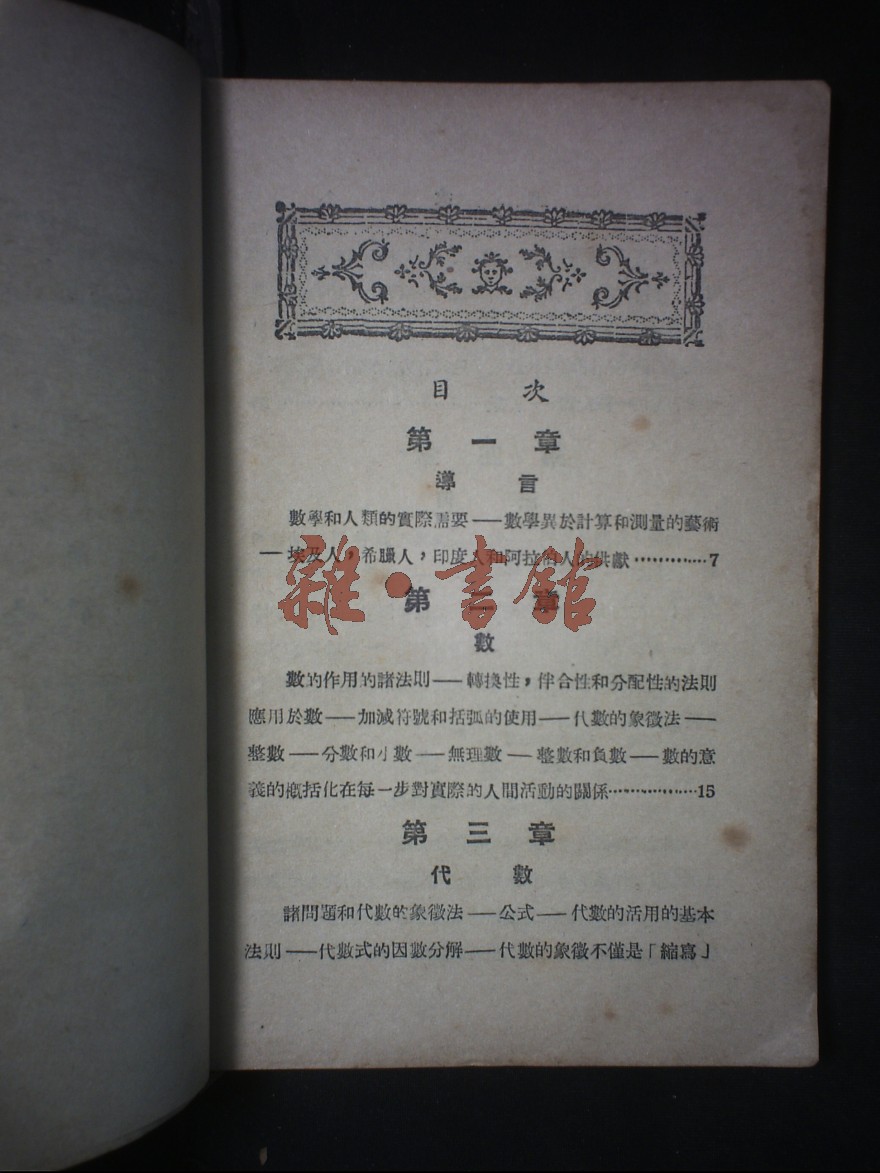 目次
第一章
導言
數學和人類的實際需要——數學異於計算和測量的藝術
——埃及人，希臘人，印度人和阿拉伯人的供獻…………7
雜·書館
第二章
數
數的作用的諸法則——轉換性，伴合性和分配性的法則
應用於數——加減符號和括弧的使用——代數的象徵法——
整數——分數和小數——無理數——整數和負數——數的意
義的概括化在每一步對實際的人間活動的關係……………15
第三章
代數
諸問題和代數的象徵法——公式——代數的活用的基本
法則——代數式的因數分解——代數的象徵不僅是「縮寫」